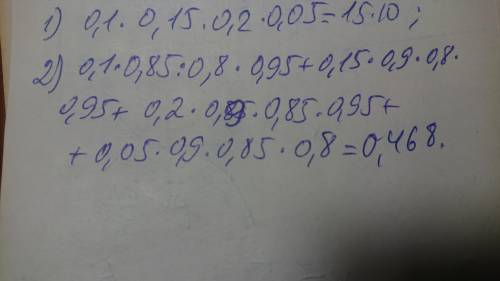 1) 0,1 · 0,15 · 0,2 · 0,05 = 15 · 10 ;
2) 0,1 · 0,85 · 0,8 · 0,95 + 0,15 · 0,9 · 0,8 ·
0,95 + 0,2 · 0,9 · 0,85 · 0,95 +
+ 0,05 · 0,9 · 0,85 · 0,8 = 0,468.